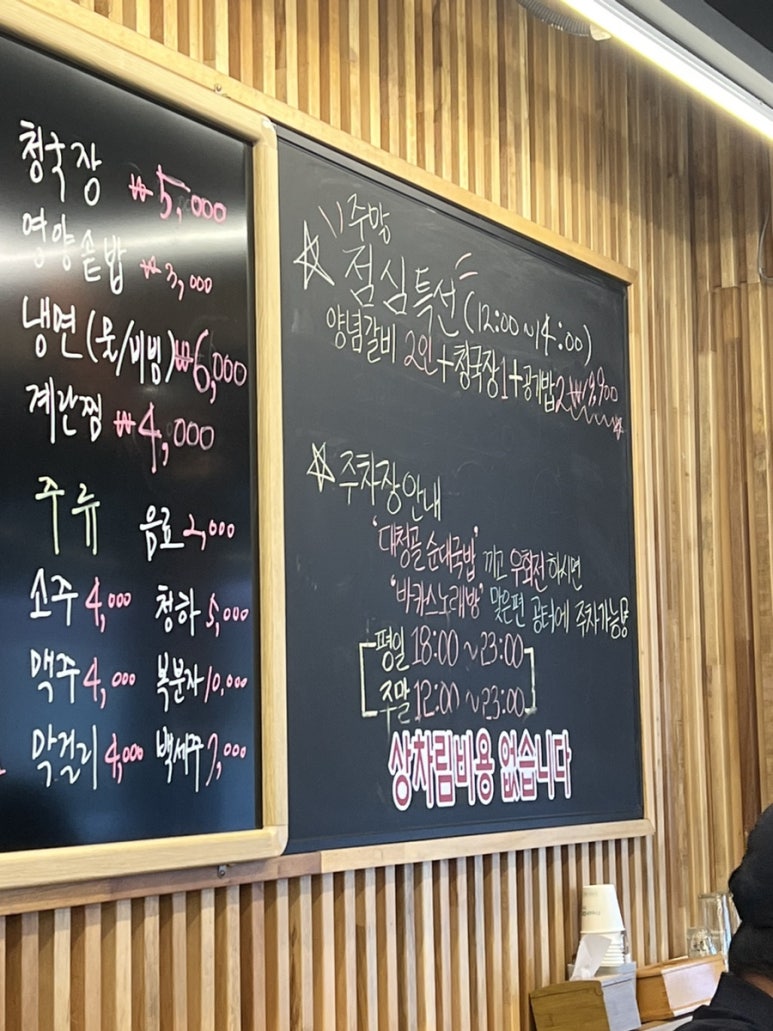 청국장 ₩5,000
영양솥밥 ₩3,000
냉면(물/비빔) ₩6,000
계란찜 ₩4,000
주류 음료 2,000
소주 4,000 청하 5,000
맥주 4,000 복분자 10,000
막걸리 4,000 백세주 7,000
주막
점심특선 (12:00~14:00)
양념갈비 2인+청국장1+공기밥2
주차장안내
'대청골순대국밥' 끼고 우회전하시면
'바카스노래방' 맞은편 공터에 주차가능
평일 18:00~23:00
주말 12:00~23:00
상차림비용 없습니다